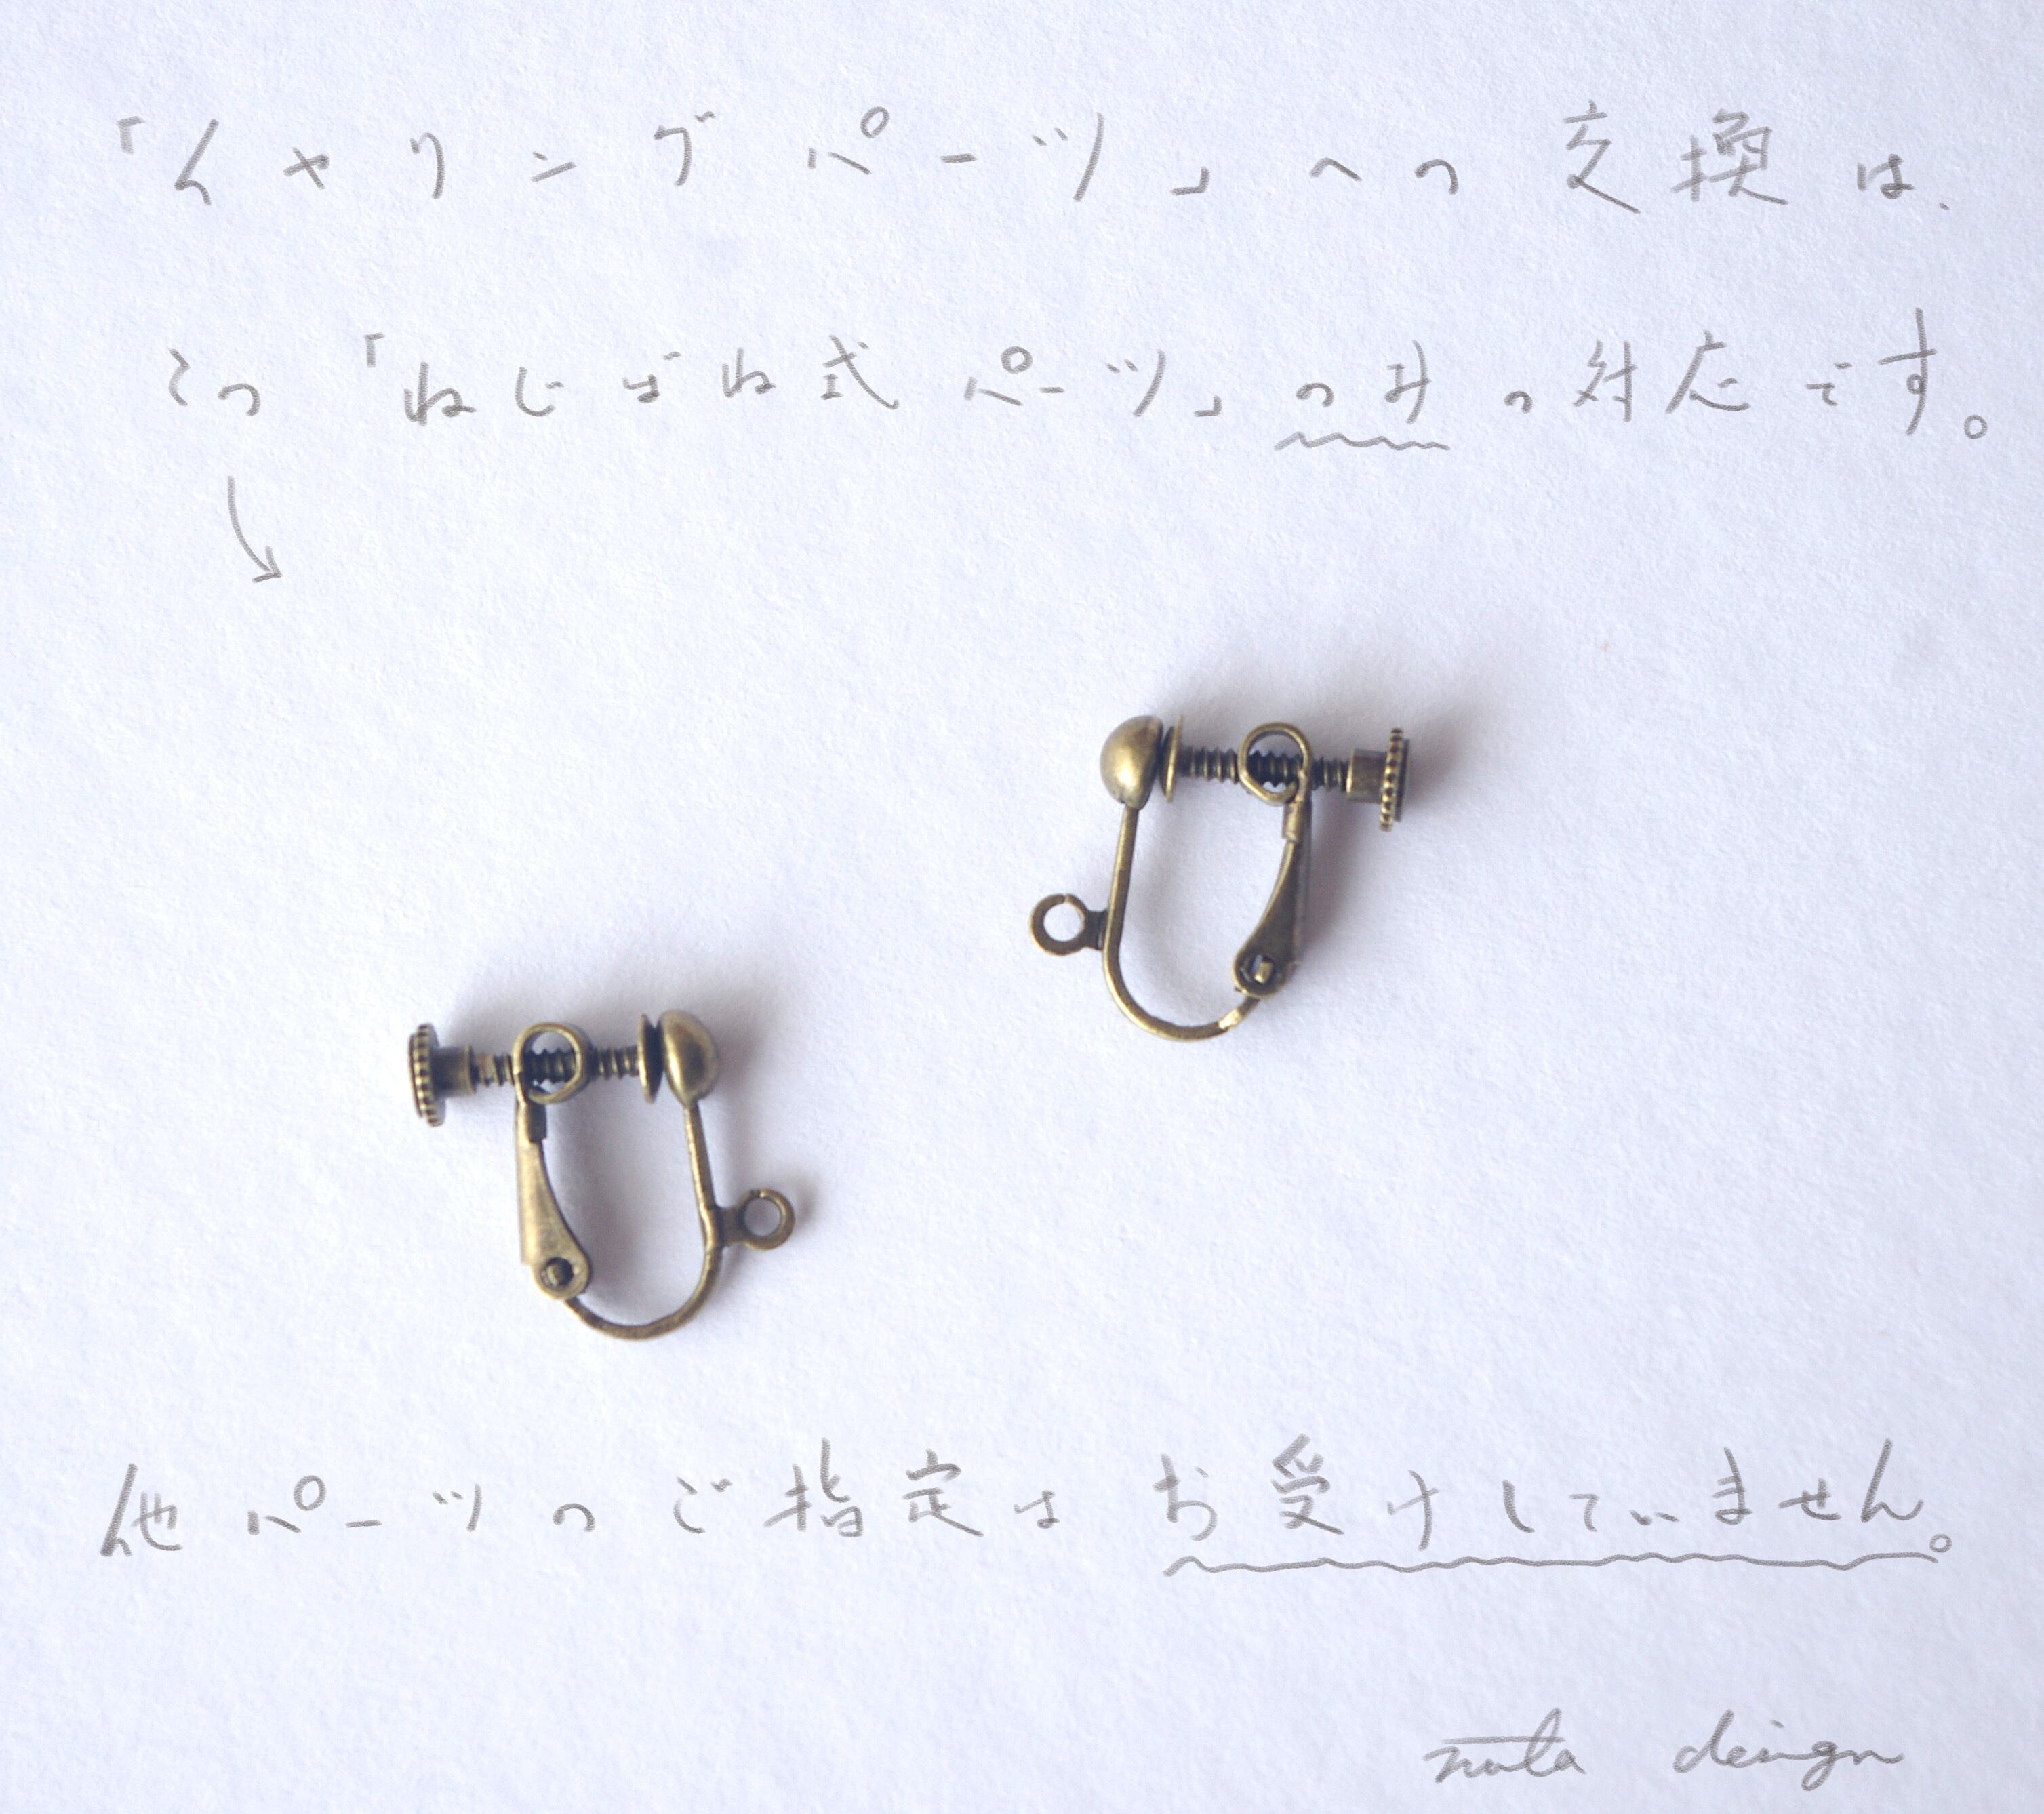 「イヤリングパーツ」への交換は、
この「ねじばね式パーツ」のみの対応です。
他パーツのご指定はお受けしていません。
design